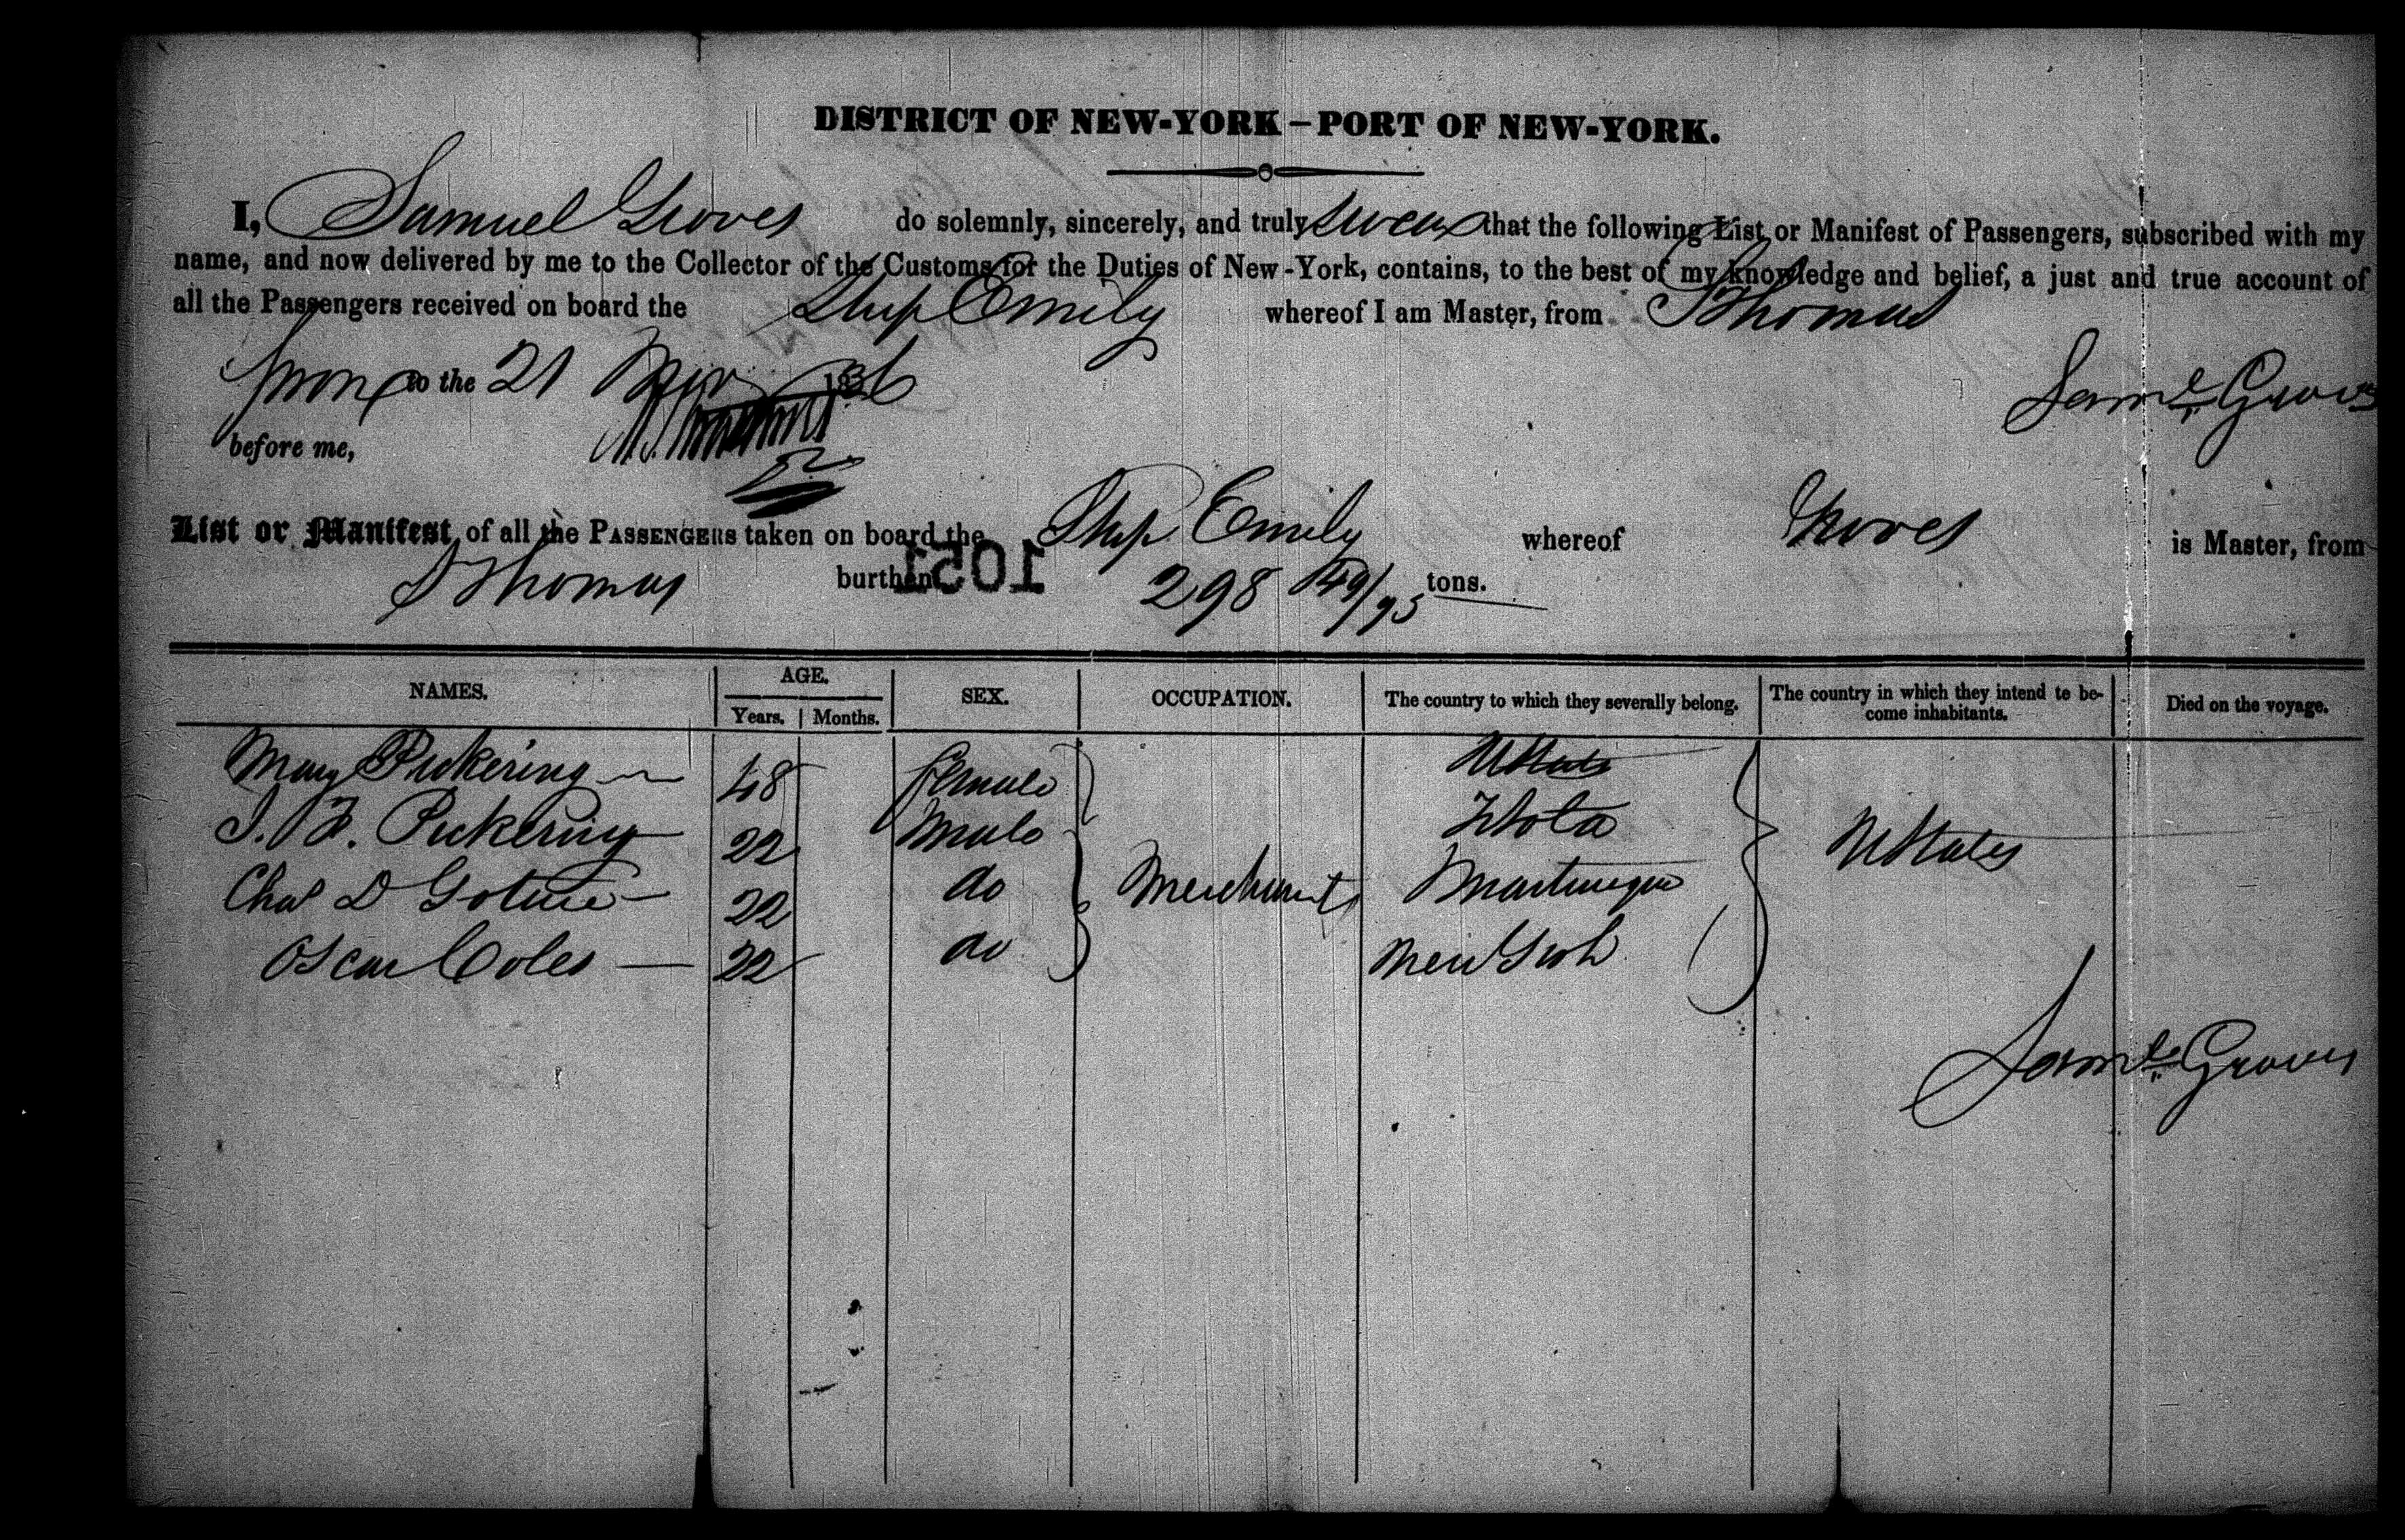 DISTRICT OF NEW-YORK – PORT OF NEW-YORK.
I, Samuel Groves do solemnly, sincerely, and truly swear that the following List or Manifest of Passengers, subscribed with my
name, and now delivered by me to the Collector of the Customs for the Duties of New-York, contains, to the best of my knowledge and belief, a just and true account of
all the Passengers received on board the Ship Emily whereof I am Master, from St Thomas
Sworn to the 21 Nov 1836
Saml Groves
before me,
List or Manifest of all the PASSENGERS taken on board the Ship Emily whereof Groves is Master, from
St Thomas burthen 298 49/95 tons.
1051
NAMES. AGE. SEX. OCCUPATION. The country to which they severally belong. The country in which they intend to be-
come inhabitants. Died on the voyage.
Years. Months.
Mary Pickering 48 female UStates
Pickering 22 Male
Chas D 22 do Merchants Martinique UStates
Oscar Coles 22 do New York
Saml Groves